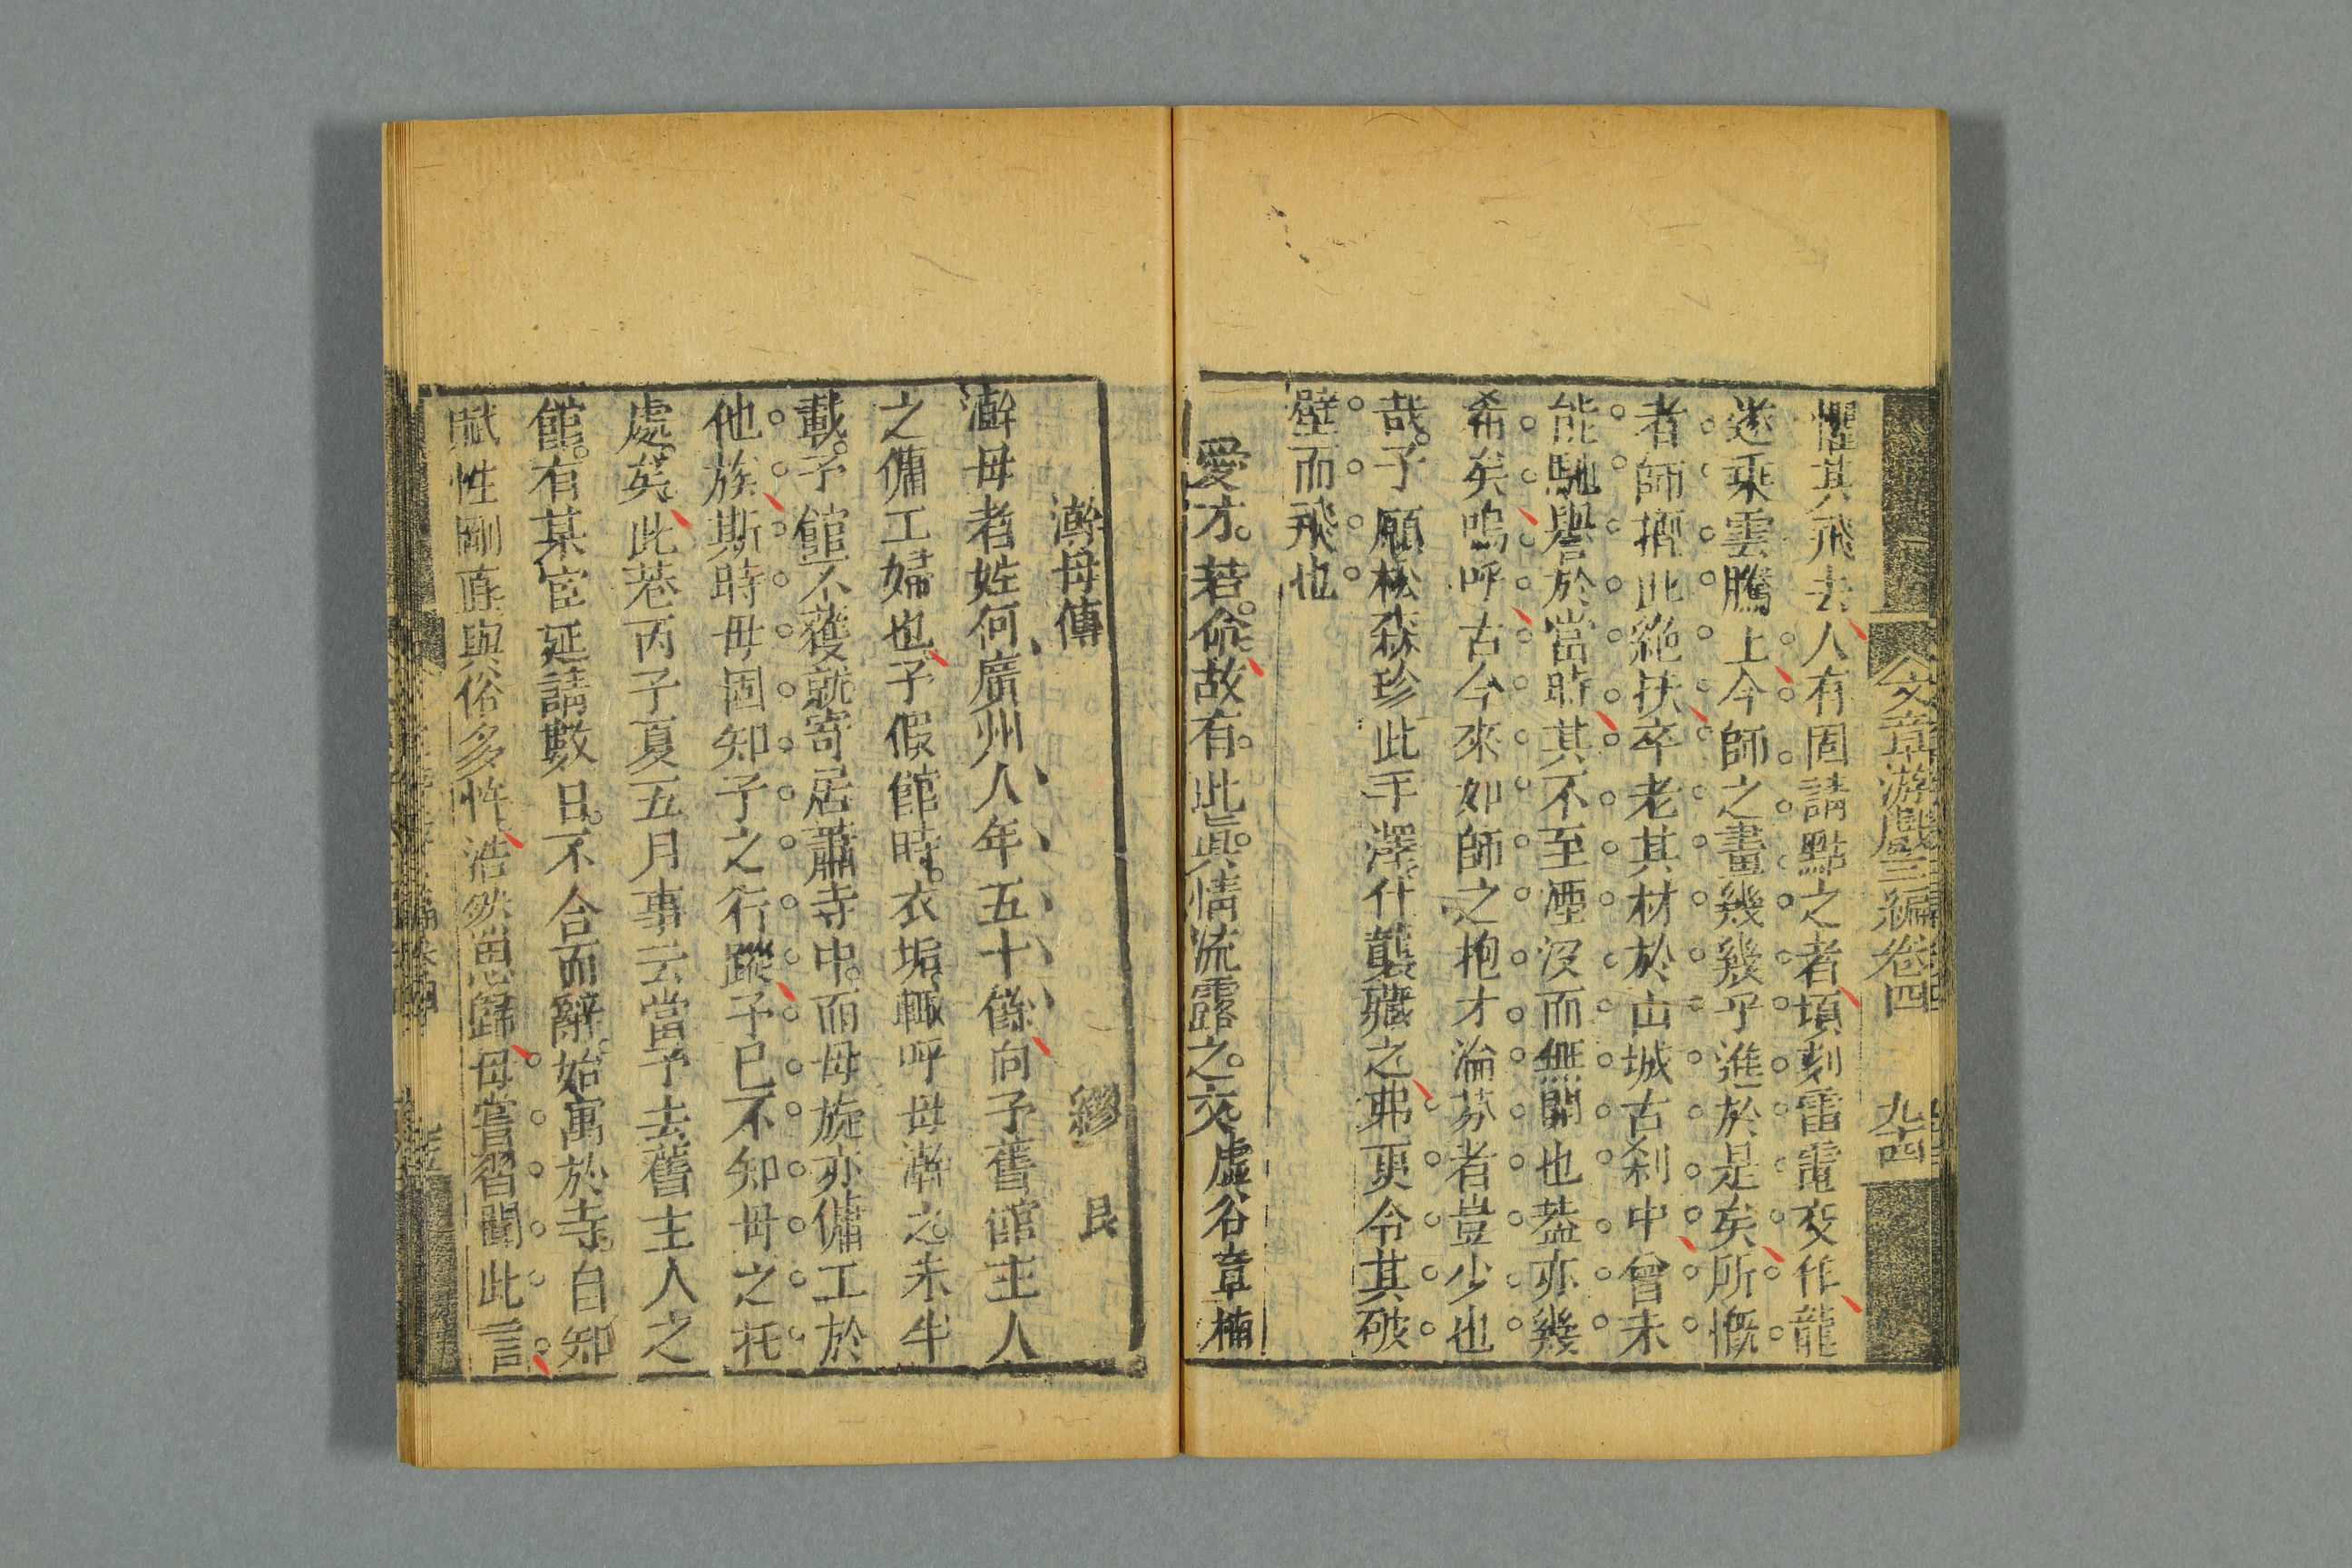 文章游戲三編卷四 九十四
懼其飛去人有固請點之者頃刻雷電交作龍
遂乘雲騰上今師之畫幾幾乎進於是矣所慨
者師擅此絕技卒老其材於山城古刹中曾未
能馳譽於當時其不至湮沒而無聞也葢亦幾
希矣嗚呼古今來如師之抱才淪棼者豈少也
哉予願松森珍此手澤什襲藏之弗更令其破
壁而飛也
愛才若命故有此眞情流露之文 虛谷章楠
澣母傳
繆 艮
澣母者姓何廣州人年五十餘向予舊館主人
之傭工婦也予假館時衣垢輒呼母澣之未半
載予館不獲就寄居蕭寺中而母旋亦傭工於
他族斯時母固知予之行蹤予已不知母之托
處矣此巷丙子夏五月事云當予去舊主人之
館有某宦延請數日不合而辭始寓於寺自知
賦性剛直與俗多忤浩然思歸母嘗習聞此言